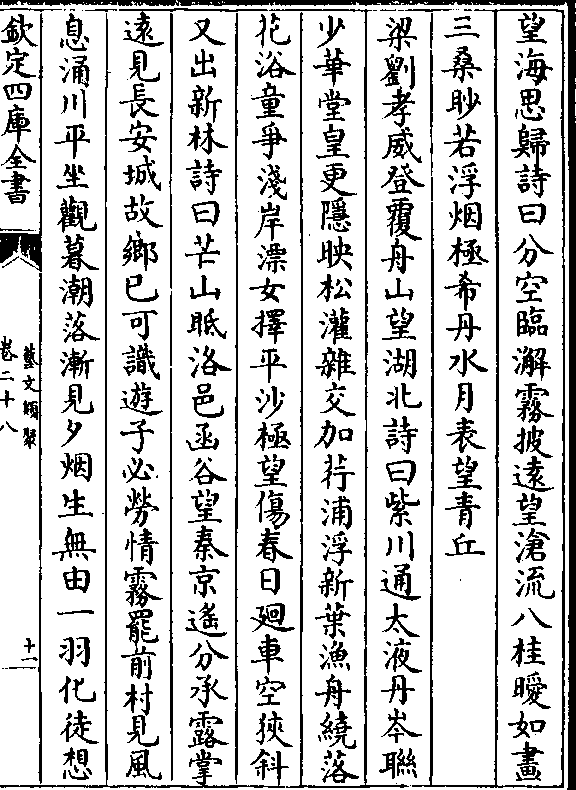 望海思歸詩曰分空臨澥霧披遠望滄流八桂曖如畫
三桑眇若浮烟極希丹水月表望青丘
梁劉孝威登覆舟山望湖北詩曰紫川通太液丹岑聯
少華堂皇更隱映松灌雜交加荇浦浮新葉漁舟繞落
花浴童爭淺岸漂女擇平沙極望傷春日廻車空狹斜
又出新林詩曰芒山眡洛邑函谷望秦京遙分承露掌
遠見長安城故鄉已可識遊子必勞情霧罷前村見風
息涌川平坐觀暮潮落漸見夕烟生無由一羽化徒想
欽定四庫全書
藝文類聚
卷二十八
十二